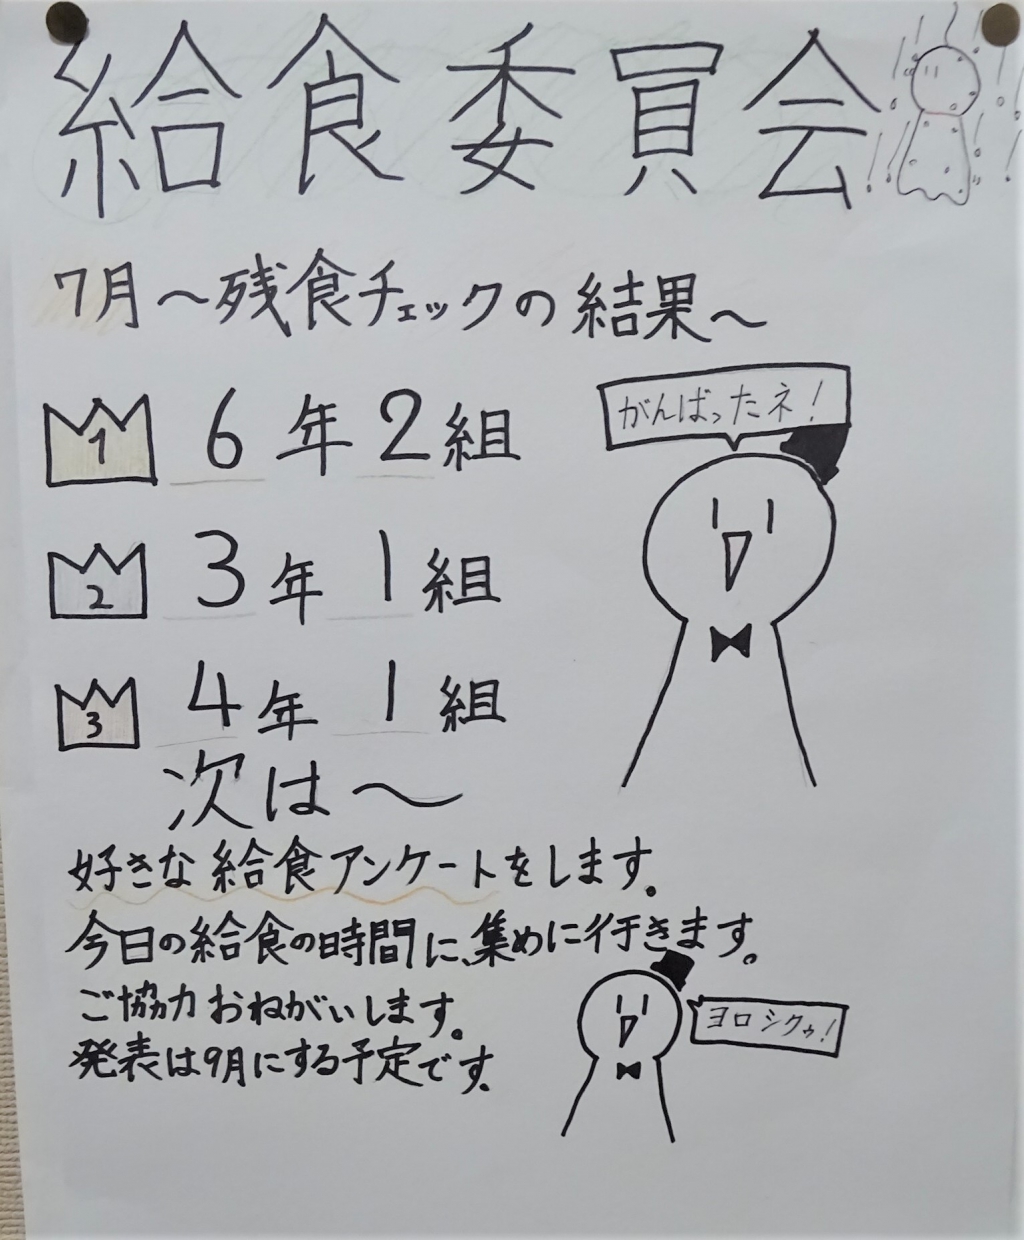 給食委員会
7月〜残食チェックの結果〜
がんばったネ!
1 6年2組
2 3年1組
3 4年1組
次は〜
好きな給食アンケートをします。
今日の給食の時間に、集めに行きます。
ご協力おねがいします。
ヨロシクゥ!
発表は9月にする予定です。